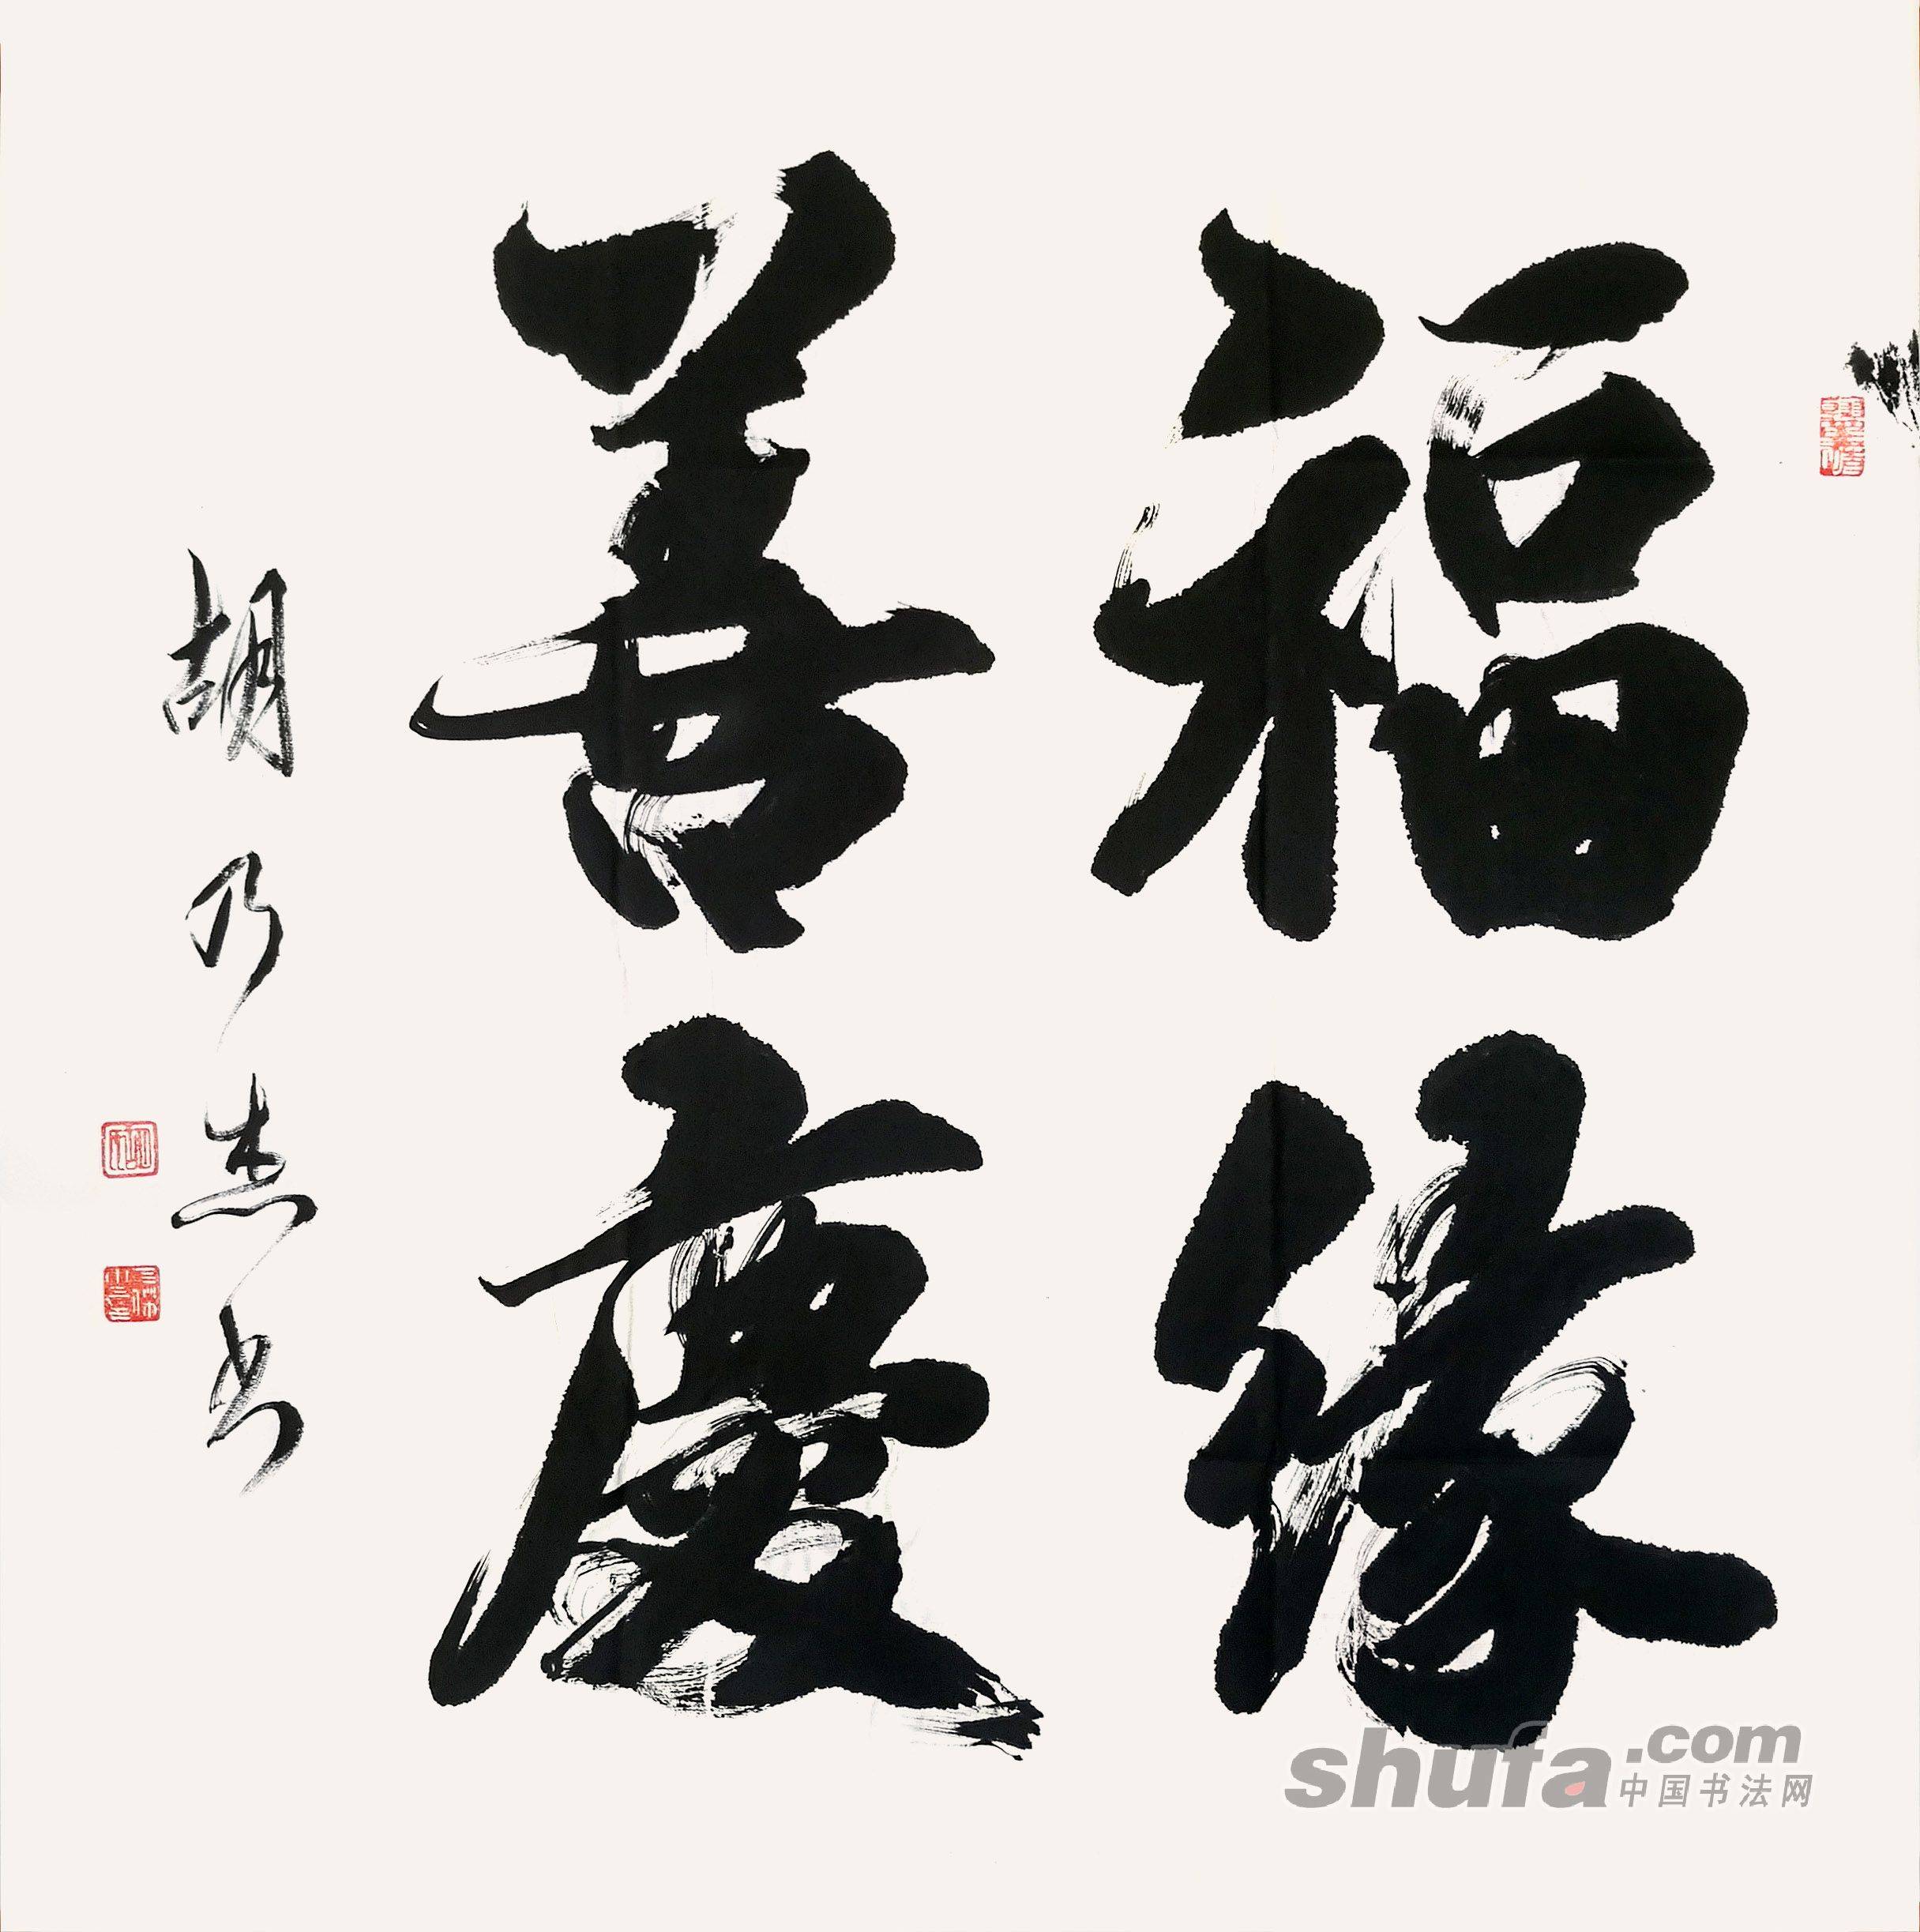 福緣
善慶
胡乃杰书
shufa.com
中国书法网